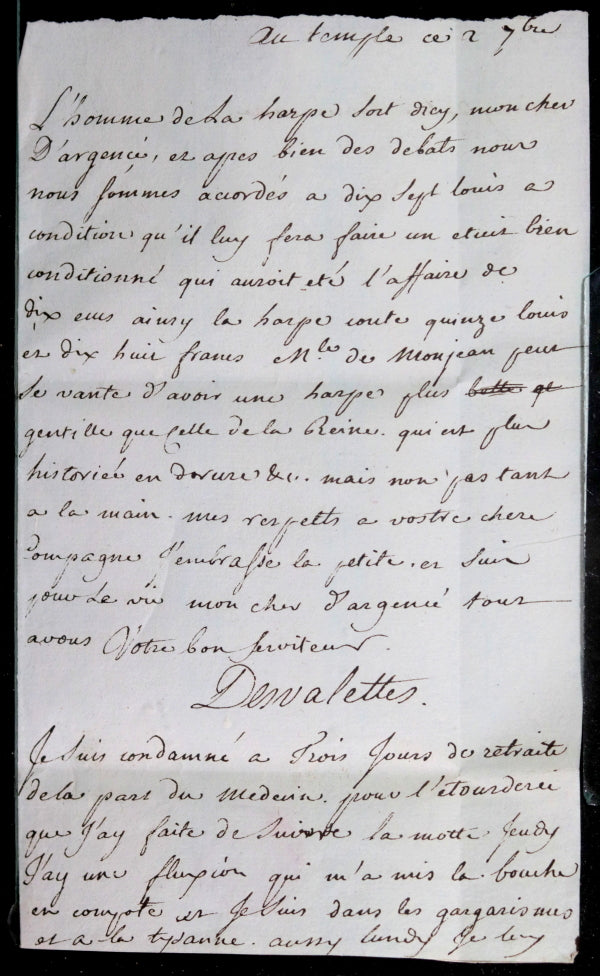 au temple ce 2 7bre
L'homme de La harpe sort dicy, mon cher
D'argencé, et apres bien des debats nous
nous sommes accordés a dix sept louis a
condition qu'il luy fera faire un etuit bien
conditionné qui auroit eté l'affaire de
dix ecus ainsy la harpe coute quinze louis
et dix huit francs Mlle de Monjean peut
se vante d'avoir une harpe plus belle et
gentille que Celle de la Reine. qui est plus
historiée en dorure &c. mais non pas tant
a la main. mes respects a vostre chere
Compagne J'embrasse la petite. et suis
pour La vie mon cher d'argencé tout
avous Votre bon serviteur.
Desvalettes.
Je suis condamné a Trois Jours de retraite
de la part du Medecin. pour l'etourderei
que J'ay faite de suivre la motte Jeudy
J'ay une fluxion qui m'a mis la bouche
en compote et Je suis dans les gargarismes
et a la tysanne. aussy lundy Je